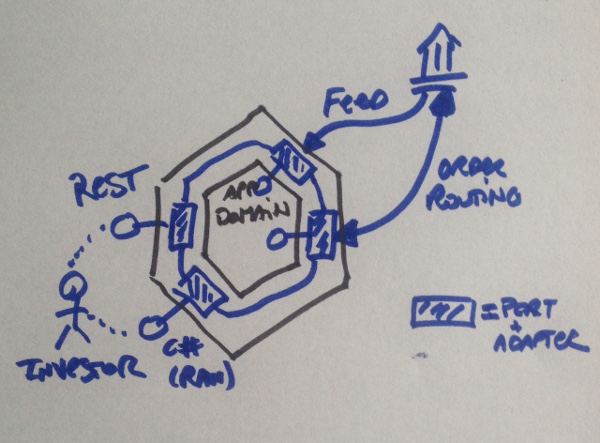 FEED
REST
ORDER
ROUTING
APP
DOMAIN
INVESTOR
C#
(RAW)
= PORT
+
ADAPTER